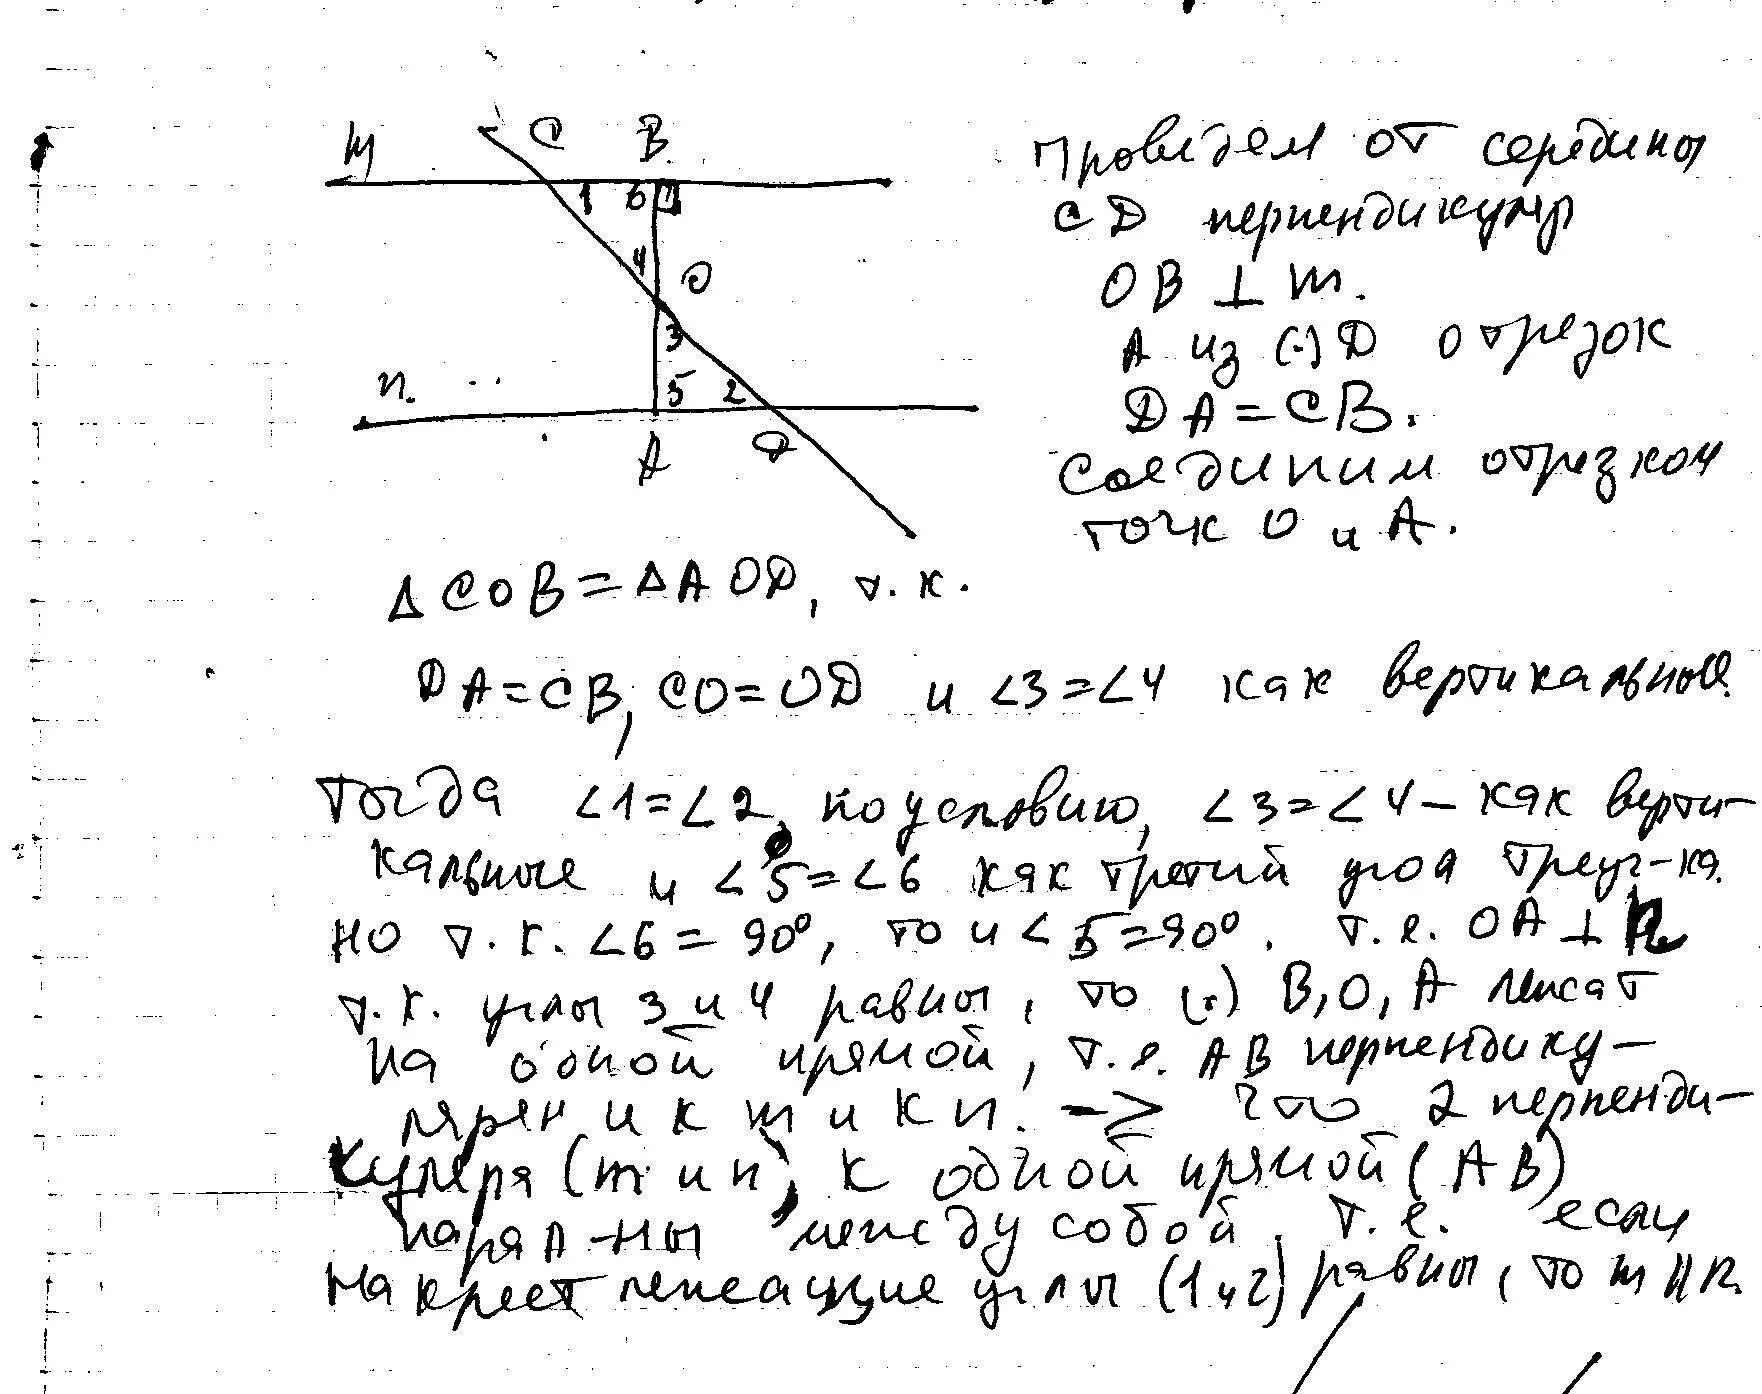 m
C
B
1 6
4
O
3
n.
5 2
A
D
Проведем от середины
CD перпендикуляр
OB ⊥ m.
А из (·) D отрезок
DA = CB.
Соединим отрезком
точк O и A.
Δ COB = Δ AOD, т.к.
DA = CB, CO = OD и <3 = <4 как вертикальные.
Тогда <1 = <2, по условию, <3 = <4 – как верти-
кальные и <5 = <6 как третий угол треуг-ка.
Но т.к. <6 = 90°, то и <5 = 90°. т.е. OA ⊥ n
т.к. углы 3 и 4 равны, то (·) B, O, A лежат
на одной прямой, т.е. AB перпендику-
лярен и к m и к n. –> что 2 перпенди-
куляра (m и n), к одной прямой (AB)
парал-ны между собой, т.е. если
накрест лежащие углы (1 и 2) равны, то m || n.